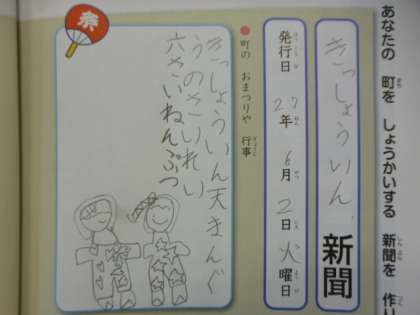 あなたの 町を しょうかいする 新聞を 作り
きっしょういん 新聞
発行日 27年 6月 2日 火曜日
●町の おまつりや 行事
祭
きっしょういん天まんぐ
うのさいれい
六さいねんぶつ